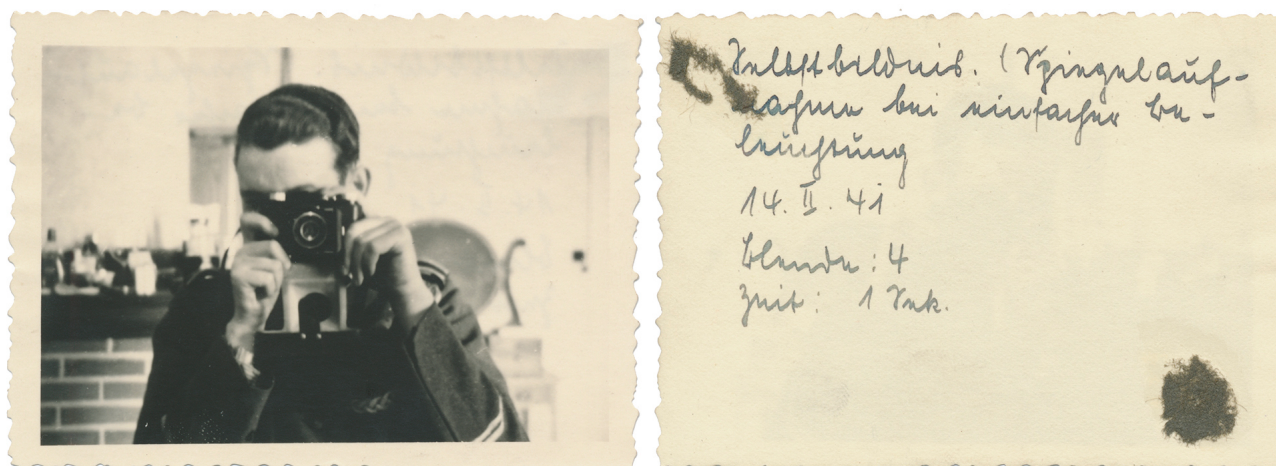 Selbstbildnis. (Spiegelauf-
nahme bei einfacher Be-
leuchtung
14. II. 41
Blende: 4
Zeit: 1 Sek.